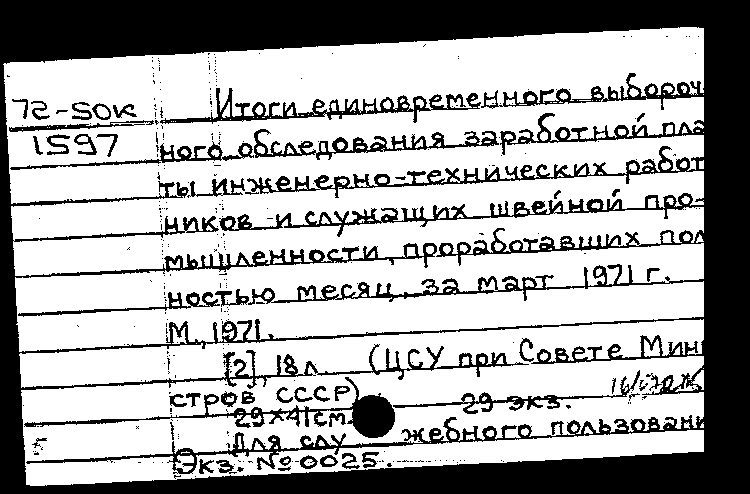 72-5ОК Итоги единовременного выбороч
1597 ного обследования заработной пла
ты инженерно-технических работ
ников и служащих швейной про-
мышленности, проработавших пол
ностью месяц, за март 1971 г.
М., 1971.
[2], 18 л. (ЦСУ при Совете Мини
стров СССР)
29×41 см. 29 экз.
Для служебного пользовани
Экз. № 0025.